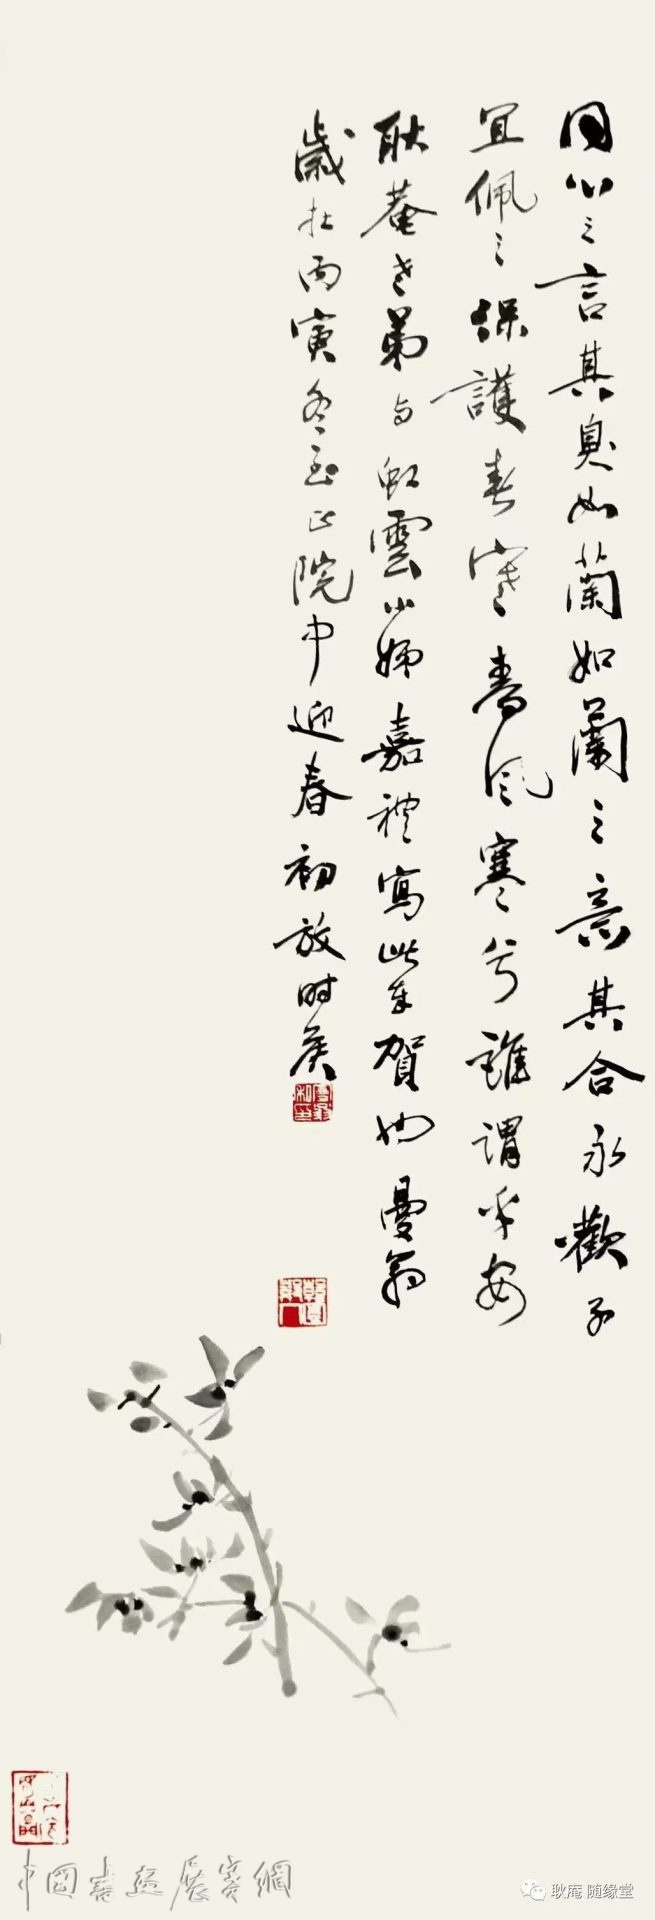 同心之言其臭如蘭如蘭之意其合永歡子
宜佩之保護春寒春風寒兮誰謂平安
耿菴老弟与虹雲小姊嘉禮寫此奉賀也曼翁
歲在丙寅冬至正院中迎春初放時矣
中國書畫展賽網
耿庵 随缘堂